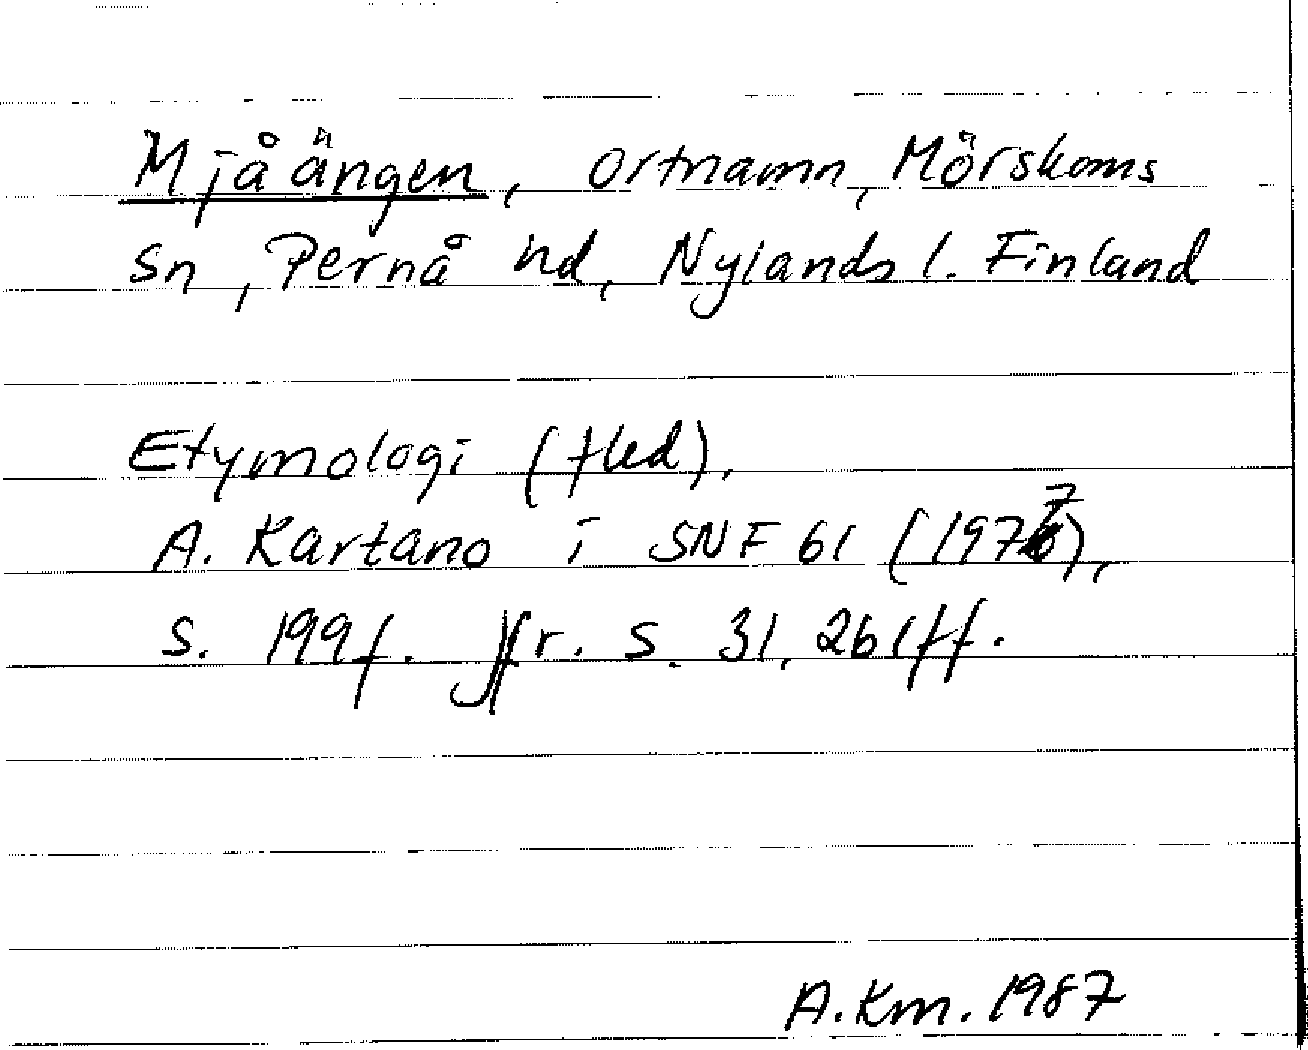 Mjåängen, ortnamn, Mörskoms
sn, Pernå hd, Nylands l. Finland
Etymologi (fled).
A. Kartano i SNF 61 (1977),
s. 199f. Jfr. s. 31, 261ff.
A.Km. 1987